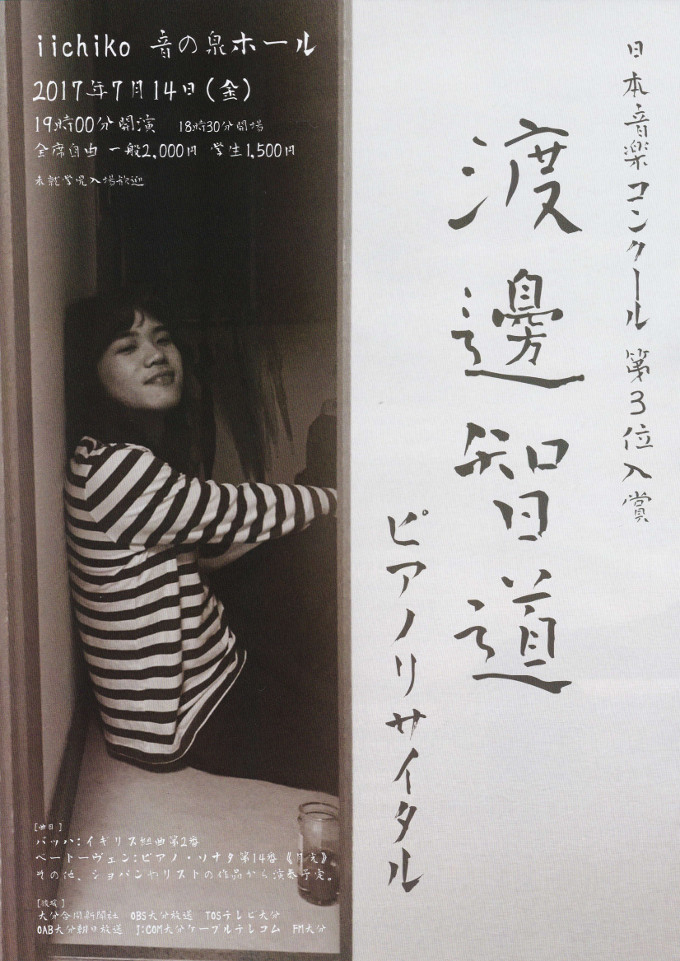 iichiko 音の泉ホール
2017年7月14日(金)
19時00分開演 18時30分開場
全席自由 一般2,000円 学生1,500円
未就学児入場歓迎
日本音楽コンクール 第3位入賞
渡邊智道
ピアノリサイタル
[曲目]
バッハ:イギリス組曲第2番
ベートーヴェン:ピアノ・ソナタ第14番《月光》
その他、ショパンやリストの作品から演奏予定。
[後援]
大分合同新聞社 OBS大分放送 TOSテレビ大分
OAB大分朝日放送 J:COM大分ケーブルテレコム FM大分